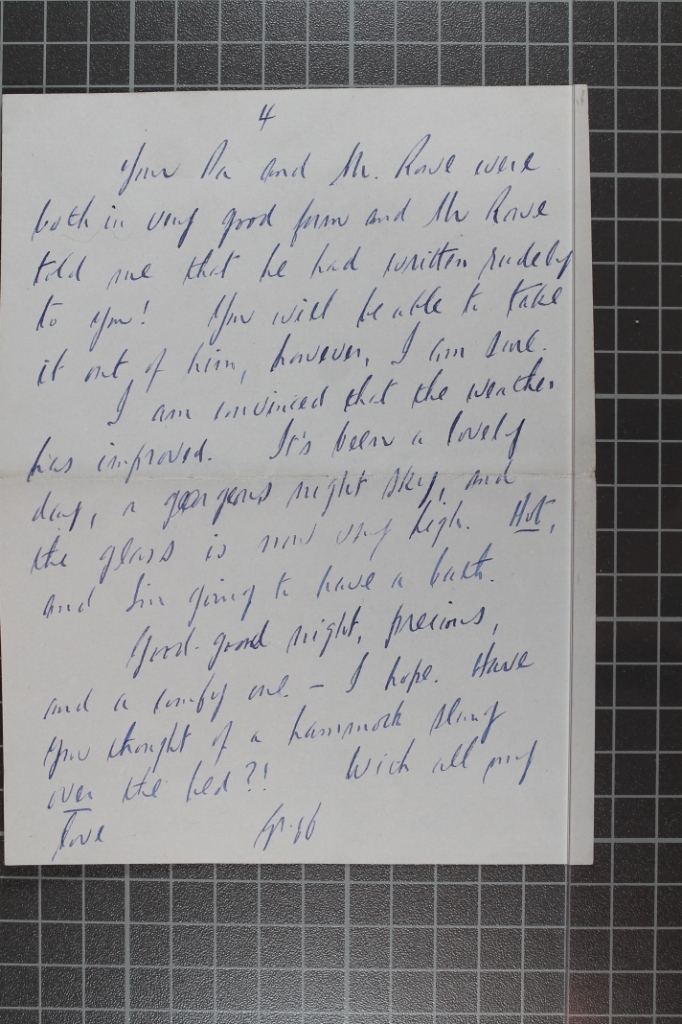 4
Your Pa and Mr. Rowe were
both in very good form and Mr Rowe
told me that he had written rudely
to you! You will be able to take
it out of him, however, I am sure.
I am convinced that the weather
has improved. It's been a lovely
day, a gorgeous night sky, and
the glass is now very high. Hot,
and I'm going to have a bath.
Good-good night, precious,
and a comfy one - I hope. Have
you thought of a hammock slung
over the bed?! With all my
love